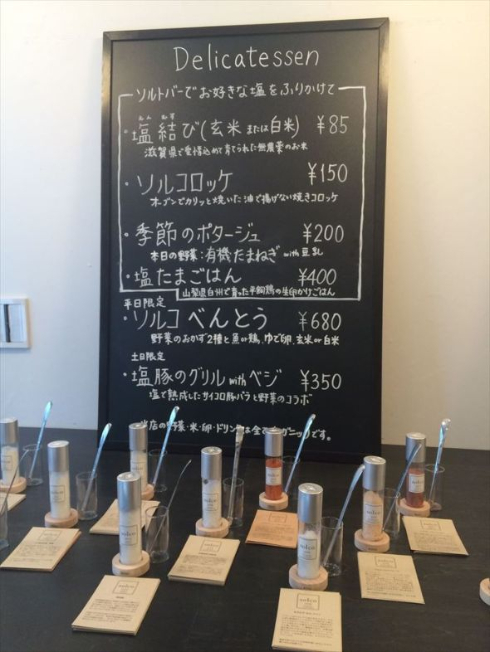 Delicatessen
ソルトバーでお好きな塩をふりかけて
・塩結び(玄米または白米) ¥85
滋賀県で愛情込めて育てられた無農薬のお米
・ソルコロッケ ¥150
オーブンでカリッと焼いた油で揚げない焼きコロッケ
・季節のポタージュ ¥200
本日の野菜:有機たまねぎ with 豆乳
・塩たまごはん ¥400
山梨県白州で育った平飼鶏の生卵かけごはん
平日限定
・ソルコべんとう ¥680
野菜のおかず2種と魚or鶏、ゆで卵、玄米or白米
土日限定
・塩豚のグリルwithベジ ¥350
塩で熟成したサイコロ豚バラと野菜のコラボ
当店の野菜・米・卵・ドリンクは全てオーガニックです。